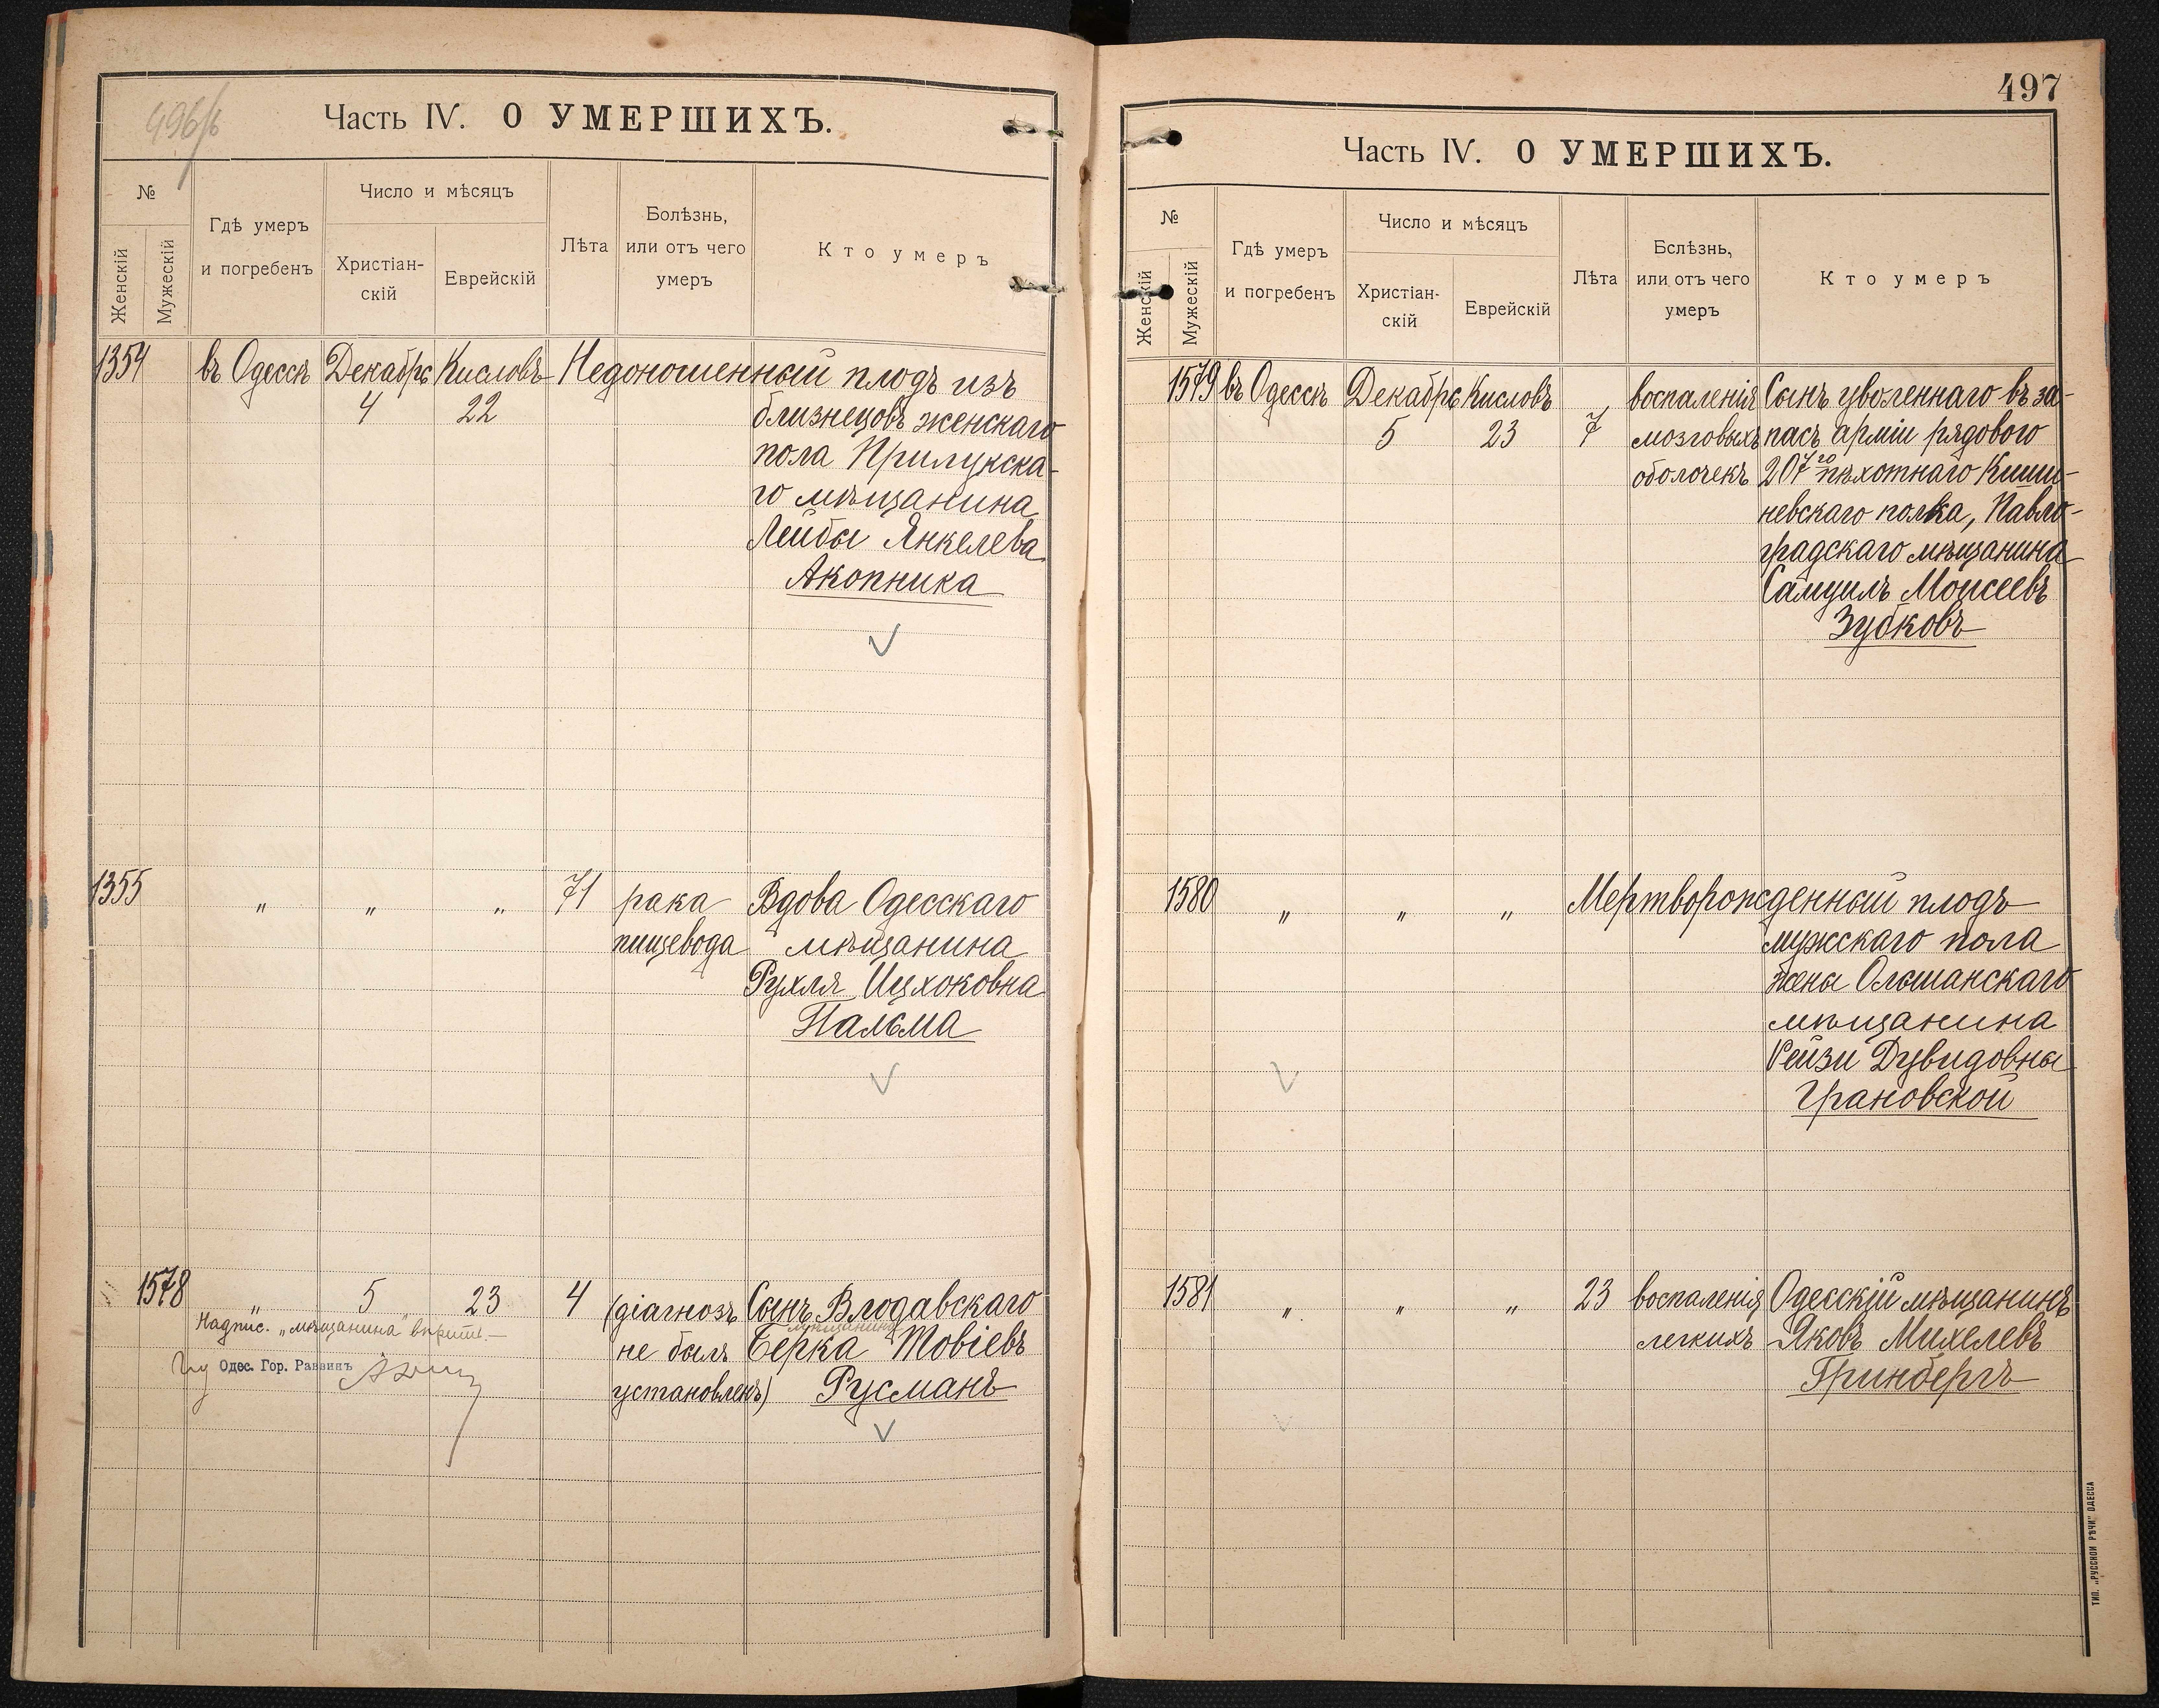 496/б
Часть IV. О УМЕРШИХЪ.
№
Женскій
Мужескій
Гдѣ умеръ
и погребенъ
Число и мѣсяцъ
Христіан-
скій
Еврейскій
Лѣта
Болѣзнь,
или отъ чего
умеръ
Кто умеръ
1354 въ Одессѣ Декабрь Кисловъ Недоношенный плодъ изъ
4 22 близнецовъ женскаго
пола Прилукска-
го мѣщанина
Лейбы Янкелева
Акопника
1355 " " " 71 рака Вдова Одесскаго
пищевода мѣщанина
Рухля Ицхоковна
Пальма
1578 " 5 23 4 (діагнозъ Сынъ Влодавскаго
мѣщанина
не былъ Берка Товіевъ
установленъ) Русманъ
Надпис. „мѣщанина"
Одес. Гор. Раввинъ
497
Часть IV. О УМЕРШИХЪ.
№
Женскій
Мужескій
Гдѣ умеръ
и погребенъ
Число и мѣсяцъ
Христіан-
скій
Еврейскій
Лѣта
Бслѣзнь,
или отъ чего
умеръ
Кто умеръ
1579 въ Одессѣ Декабрь Кисловъ воспаленія Сынъ уволеннаго въ за-
5 23 7 мозговыхъ пасъ арміи рядового
оболочекъ 207го пѣхотнаго Киши-
невскаго полка, Павло-
градскаго мѣщанина
Самуилъ Моисеевъ
Зубковъ
1580 " " " Мертворожденный плодъ
мужскаго пола
жены Ольшанскаго
мѣщанина
Рейзи Дувидовны
Грановской
1581 " " " 23 воспаленія Одесскій мѣщанинъ
легкихъ Яковъ Михелевъ
Гринбергъ
ТИП. „РУССКОЙ РѢЧИ" ОДЕССА